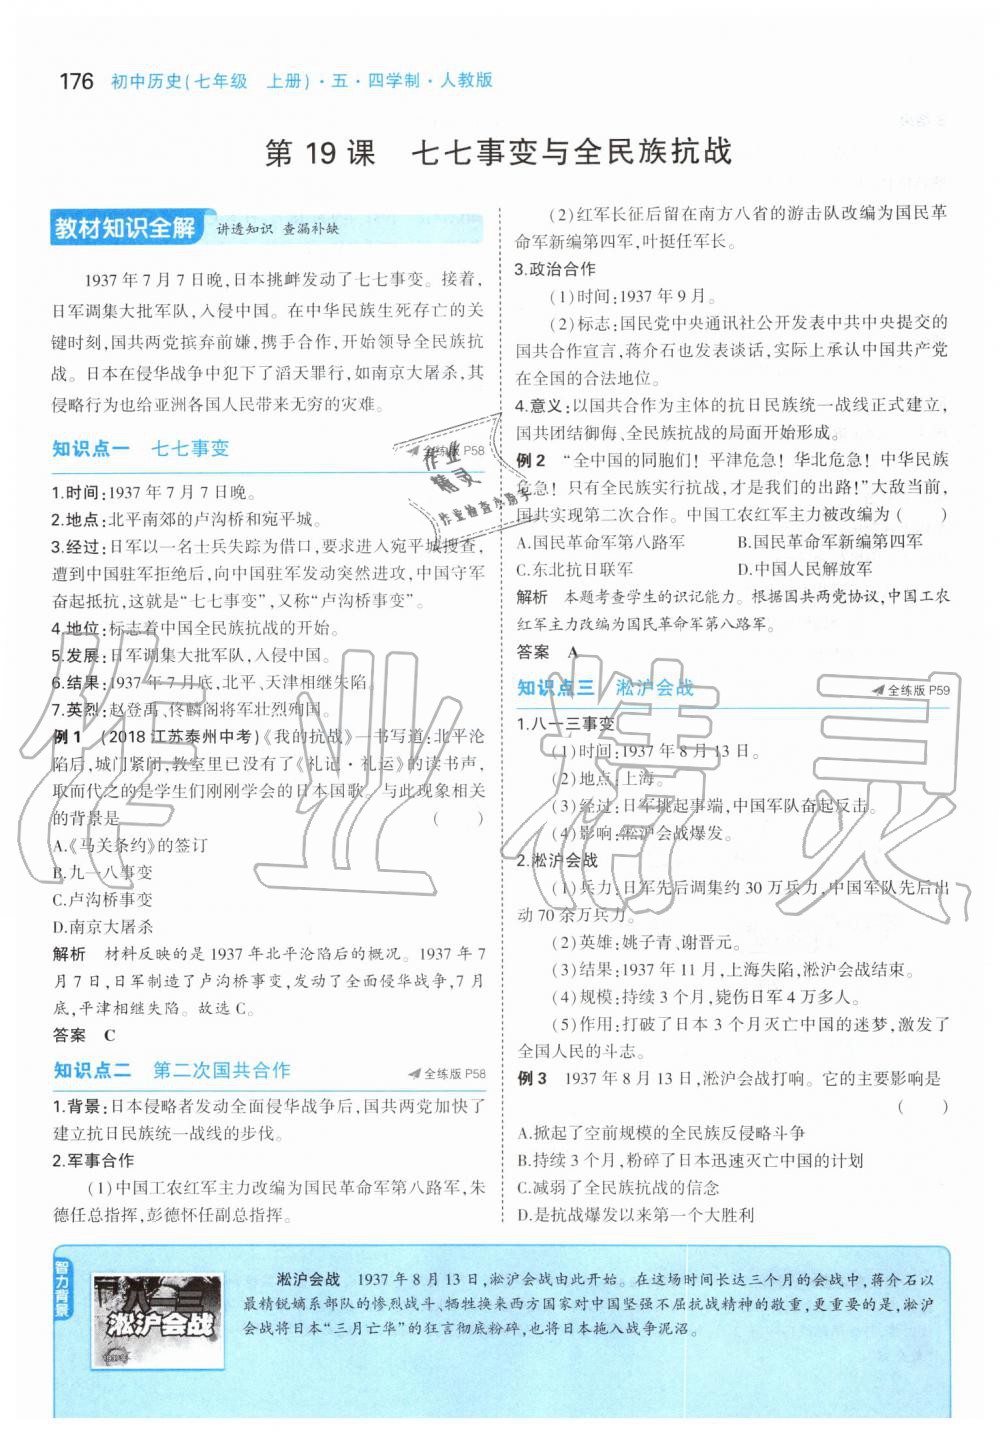 176 初中历史(七年级　上册)·五·四学制·人教版
第 19 课　七七事变与全民族抗战
教材知识全解 讲透知识 查漏补缺
1937 年 7 月 7 日晚,日本挑衅发动了七七事变。接着,
日军调集大批军队,入侵中国。在中华民族生死存亡的关
键时刻,国共两党摈弃前嫌,携手合作,开始领导全民族抗
战。日本在侵华战争中犯下了滔天罪行,如南京大屠杀,其
侵略行为也给亚洲各国人民带来无穷的灾难。
知识点一　七七事变　全练版 P58
1.时间:1937 年 7 月 7 日晚。
2.地点:北平南郊的卢沟桥和宛平城。
3.经过:日军以一名士兵失踪为借口,要求进入宛平城搜查,
遭到中国驻军拒绝后,向中国驻军发动突然进攻,中国守军
奋起抵抗,这就是“七七事变”,又称“卢沟桥事变”。
4.地位:标志着中国全民族抗战的开始。
5.发展:日军调集大批军队,入侵中国。
6.结果:1937 年 7 月底,北平、天津相继失陷。
7.英烈:赵登禹、佟麟阁将军壮烈殉国。
例 1　(2018 江苏泰州中考)《我的抗战》一书写道:北平沦
陷后,城门紧闭,教室里已没有了《礼记·礼运》的读书声,
取而代之的是学生们刚刚学会的日本国歌。与此现象相关
的背景是　(　　)
A.《马关条约》的签订
B.九一八事变
C.卢沟桥事变
D.南京大屠杀
解析　材料反映的是 1937 年北平沦陷后的概况。1937 年 7
月 7 日,日军制造了卢沟桥事变,发动了全面侵华战争,7 月
底,平津相继失陷。故选 C。
答案　C
知识点二　第二次国共合作　全练版 P58
1.背景:日本侵略者发动全面侵华战争后,国共两党加快了
建立抗日民族统一战线的步伐。
2.军事合作
(1)中国工农红军主力改编为国民革命军第八路军,朱
德任总指挥,彭德怀任副总指挥。
(2)红军长征后留在南方八省的游击队改编为国民革
命军新编第四军,叶挺任军长。
3.政治合作
(1)时间:1937 年 9 月。
(2)标志:国民党中央通讯社公开发表中共中央提交的
国共合作宣言,蒋介石也发表谈话,实际上承认中国共产党
在全国的合法地位。
4.意义:以国共合作为主体的抗日民族统一战线正式建立,
国共团结御侮、全民族抗战的局面开始形成。
例 2　“全中国的同胞们！平津危急！华北危急！中华民族
危急！只有全民族实行抗战,才是我们的出路！”大敌当前,
国共实现第二次合作。中国工农红军主力被改编为(　　)
A.国民革命军第八路军　B.国民革命军新编第四军
C.东北抗日联军　D.中国人民解放军
解析　本题考查学生的识记能力。根据国共两党协议,中国工农
红军主力改编为国民革命军第八路军。
答案　A
知识点三　淞沪会战　全练版 P59
1.八一三事变
(1)时间:1937 年 8 月 13 日。
(2)地点:上海。
(3)经过:日军挑起事端,中国军队奋起反击。
(4)影响:淞沪会战爆发。
2.淞沪会战
(1)兵力:日军先后调集约 30 万兵力,中国军队先后出
动 70 余万兵力。
(2)英雄:姚子青、谢晋元。
(3)结果:1937 年 11 月,上海失陷,淞沪会战结束。
(4)规模:持续 3 个月,毙伤日军 4 万多人。
(5)作用:打破了日本 3 个月灭亡中国的迷梦,激发了
全国人民的斗志。
例 3　1937 年 8 月 13 日,淞沪会战打响。它的主要影响是
(　　)
A.掀起了空前规模的全民族反侵略斗争
B.持续 3 个月,粉碎了日本迅速灭亡中国的计划
C.减弱了全民族抗战的信念
D.是抗战爆发以来第一个大胜利
智力背景
八一三
淞沪会战
淞沪会战　1937 年 8 月 13 日,淞沪会战由此开始。在这场时间长达三个月的会战中,蒋介石以
最精锐嫡系部队的惨烈战斗、牺牲换来西方国家对中国坚强不屈抗战精神的敬重,更重要的是,淞沪
会战将日本“三月亡华”的狂言彻底粉碎,也将日本拖入战争泥沼。
作业精灵
作业
精灵
作业检查小助手